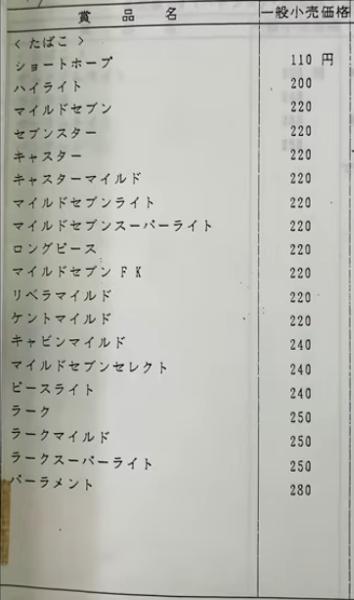 賞 品 名 一般小売価格
< たばこ >
ショートホープ 110 円
ハイライト 200
マイルドセブン 220
セブンスター 220
キャスター 220
キャスターマイルド 220
マイルドセブンライト 220
マイルドセブンスーパーライト 220
ロングピース 220
マイルドセブンFK 220
リベラマイルド 220
ケントマイルド 220
キャビンマイルド 240
マイルドセブンセレクト 240
ピースライト 240
ラーク 250
ラークマイルド 250
ラークスーパーライト 250
パーラメント 280